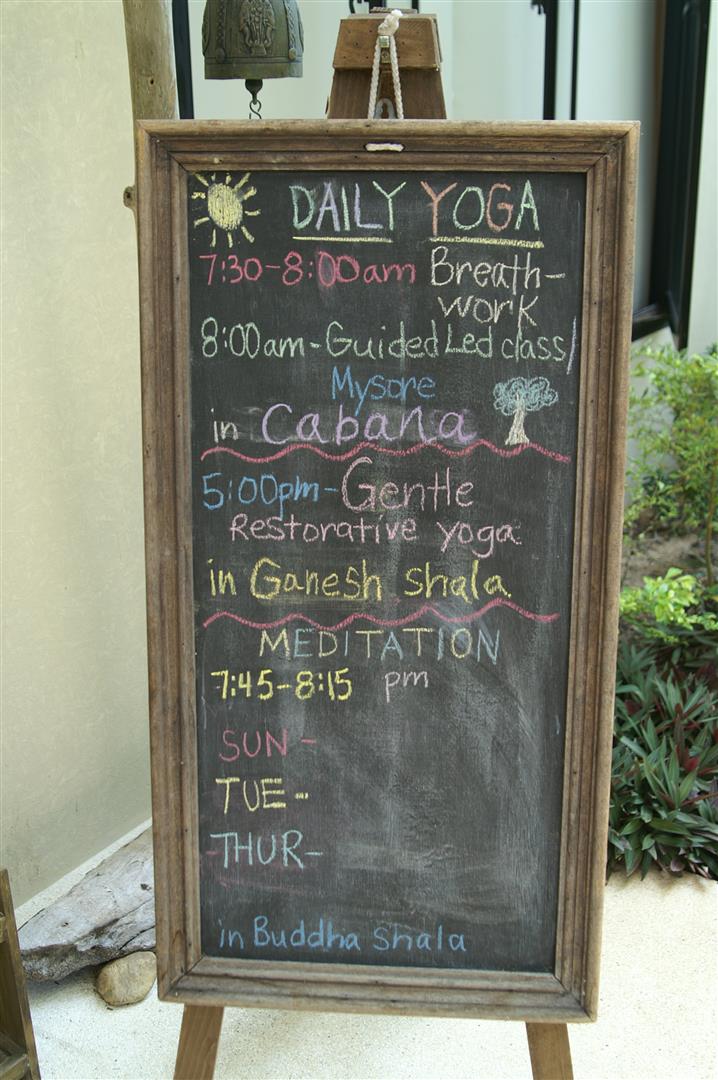 DAILY YOGA
7:30-8:00am Breath-
work
8:00am-Guided Led class/
Mysore
in Cabana
5:00pm-Gentle
Restorative yoga
in Ganesh shala
MEDITATION
7:45-8:15 pm
SUN -
TUE -
-THUR-
in Buddha shala